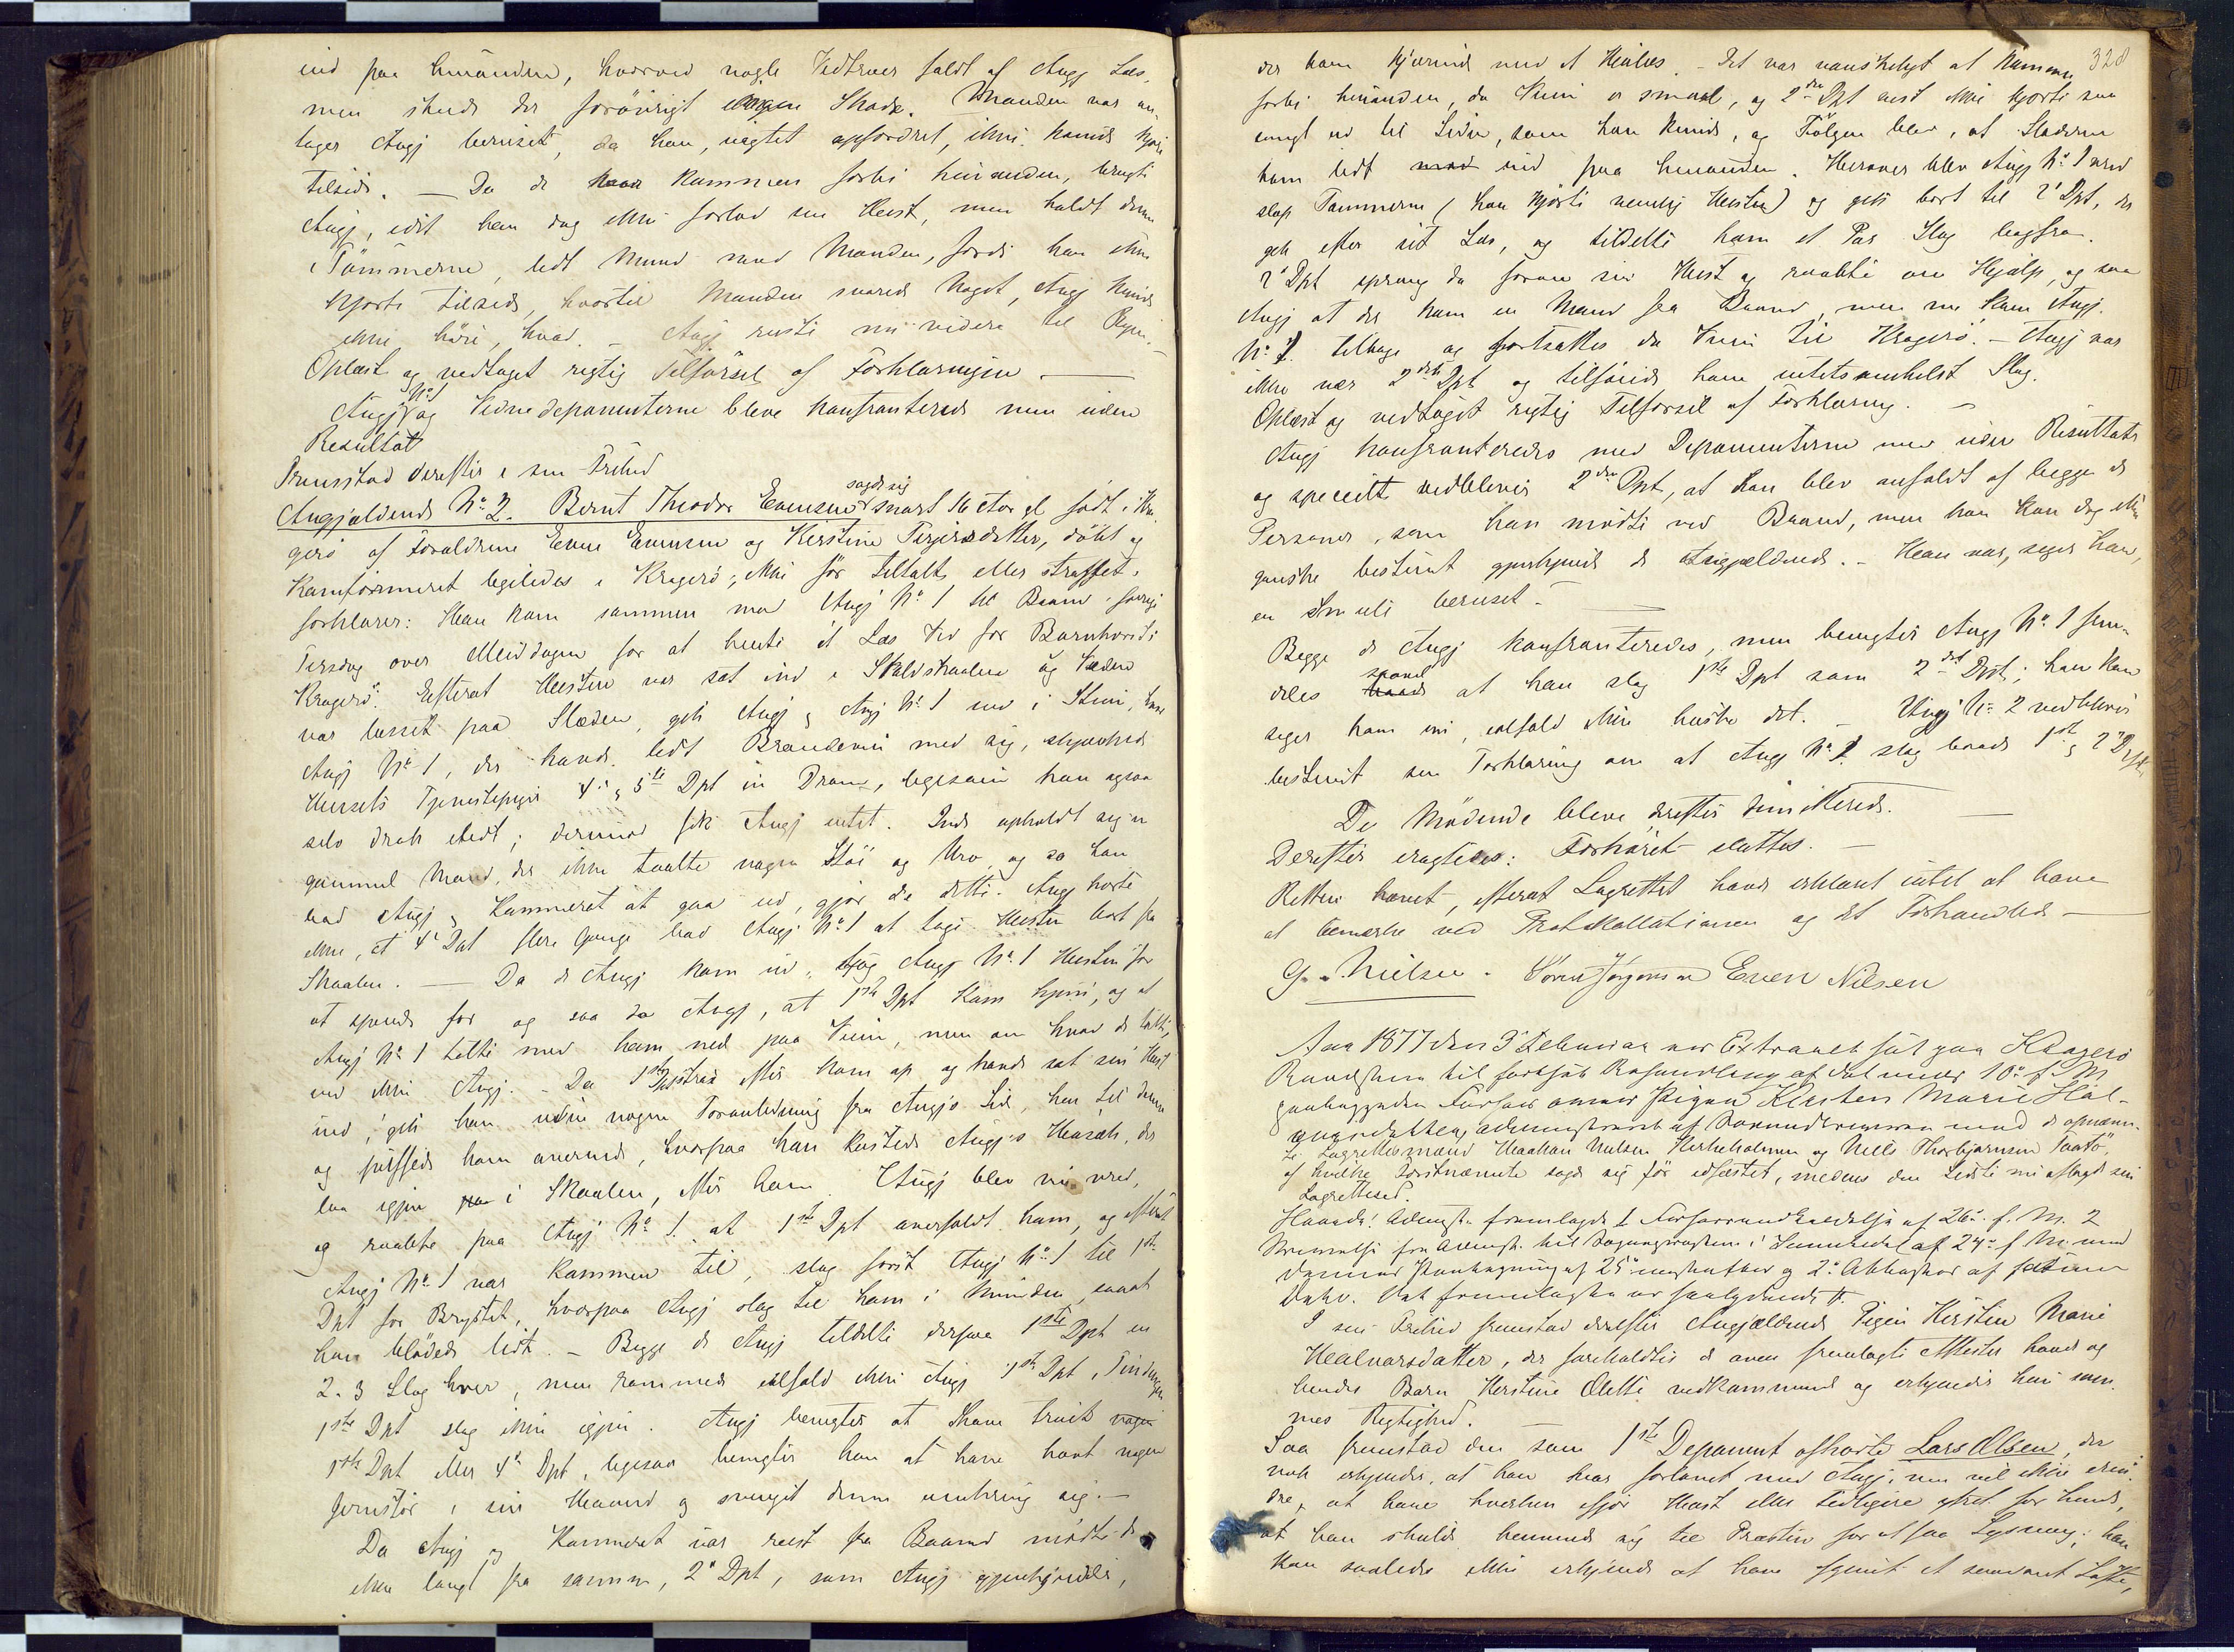 ind paa hinanden, hvorved nogle Vedtræer faldt af Angj Læs,
men skede der forövrigt ingen Skade. Manden var an-
tager Angj beruset, da han, uagtet opfordret, ikke kunde kjöre
tilside. — Da de kommen forbi hinanden, brugte
Angj, idet han dog ikke forlod sin Hest, men holdt denne
i Tömmerne, lidt Mund mod Manden, fordi han ikke
kjörte tilside, hvortil Manden svarede Noget, Angj kunde
ikke höre, hvad. — Angj reiste nu videre til Byen. —
Oplæst og vedtaget rigtig Tilförsel af Forklaringen —
Angj No 1 og Vidnedeponenterne bleve konfronterede men uden
Resultat
Fremstod derefter i sin Frihed
Angjældende No 2. Bernt Theodor Evensen sagde sig snart 16 Aar gl födt i Kra-
gerö af Forældrene Even Evensen og Kirstine Terjesdatter, döbt og
konfirmeret ligeledes i Kragerö, ikke för tiltalt eller straffet,
forklarer: Han kom sammen med Angj No 1 til Baand forrige
Tirsdag over Middagen for at hente et Læs Ved for Barnholdt i
Kragerö. Efterat Hesten var sat ind i Skaalen og Veden
var læsset paa Slæden, gik Angj og Angj No 1 ind i Stuen, hvor
Angj No 1, der havde lidt Brændevin med sig, skjænkede
Husets Tjenestepiger 4de og 5te Dpt en Dram, ligesom han ogsaa
selv drak lidt; derimod fik Angj intet. Inde opholdt sig en
gammel Mand, der ikke taalte nogen Stöi og Uro, og da han
bad Angj og Kammerat at gaa ud, gjorde de dette. Angj hörte
ikke, at 4de Dpt flere Gange bad Angj No 1 at tage Hesten bort fra
Skaalen. — Da de Angj kom ud, tog Angj No 1 Hesten for
at spænde for og saa da Angj, at 1ste Dpt kom hjem, og at
Angj No 1 talte med ham ned paa Veien, men om hvad de talte,
ved ikke Angj. — Da 1ste Dpt strax efter kom op og havde sat sin Hest
ind, gik han uden nogen Foranledning fra Angjs Side, hen til denne
og puffede ham overende, hvorpaa han kastede Angj's Hösæk, der
laa igjen i Skaalen, efter ham. Angj blev nu vred,
og raabte paa Angj No 1. at 1ste Dpt overfaldt ham, og efterat
Angj No 1 var kommen til, slog först Angj No 1 til 1ste
Dpt for Brystet, hvorpaa Angj slog til ham i Munden, saaat
han blödede lidt. — Begge de Angj tildelte derpaa 1ste Dpt en
2-3 Slag hver, men rammede ialfald ikke Angj 1ste Dpt i Tindingen
1ste Dpt slog ikke igjen. Angj benegter at have truet
1ste Dpt eller 4de Dpt, ligesaa benegter han at have havt nogen
Jernstör i sin Haand og svunget denne omkring sig. —
Da Angj og Kammerat var reist fra Baand mödte de
ikke langt fra samme, 2det Dpt, som Angj gjenkjender,
328
der kom kjörende med et Höilæs. — Det var vanskeligt at komme
forbi hinanden, da Veien er smal, og 2det Dpt vist ikke kjörte saa
langt ud til Siden, som han kunde, og Fölgen blev, at Slæderne
kom lidt ind paa hinanden. Herover blev Angj No 1 vred
slap Tömmerne (han kjörte nemlig Hesten) og gik bort til 2det Dpt, der
gik efter sit Læs, og tildelte ham et Par Slag bagfra.
2det Dpt sprang da foran sin Hest og raabte om Hjælp, og saa
Angj at der kom en Mand fra Baand, men nu kom Angj.
No 1. tilbage og fortsattes da Veien til Kragerö. — Angj var
ikke nær 2det Dpt og tilföiede ham intetsomhelst Slag.
Oplæst og vedtaget rigtig Tilforsel af Forklaring. —
Angj konfronteredes med Deponenterne men uden Resultat
og specielt vedbliver 2det Dpt, at han blev anfaldt af begge de
Personer, som han mödte ved Baand, men han kan dog ikke
ganske bestemt gjenkjende de Angjældende. — Han var, siger han,
en Smule beruset. —
Begge de Angj konfronteredes, men benegter Angj No 1 frem-
deles saavel at han slog 1ste Dpt som 2det Dpt; han kan
siger han nu, ialfald ikke huske det. — Angj No 2 vedbliver
bestemt sin Forklaring om at Angj No 1 slog baade 1ste og 2det Dpt
De Mödende bleve derefter dimitterede. —
Derefter eragtedes: Forhöret sluttes. —
Retten hævet, efterat Lagrettet havde erklæret intet at have
at bemærke ved Protokollationen og det Forhandlede —
G. Nielsen. Sören Jörgensen Even Nilsen
Aar 1877 den 3de Februar var Extraret sat paa Kragerö
Raadstue til fortsat Behandling af det under 10de f. M
paabegyndte Forhör anm. Pigen Kirsten Marie Hal-
vorsdatter, administreret af med de opnævn-
te Lagrettesmænd Haakon Nielsen Kirkeholmen og Niels Thorbjörnsen Taatö,
af hvilke Förstnævnte sagde sig för edfæstet, medens den Sidste nu aflagde sin
Lagretteseed.
Havende: Administr. fremlagde 1 Forhörsudskrift af 26de f. M. 2
Skrivelse fra Administr. til Sognepræsten i Sannikedal af 24de f M. med
dennes Paategning af 25de og 2de Attester af samme
Dato. Det fremlagte er saalydende #.
I sin Frihed fremstod derefter Angjældende Pigen Kirsten Marie
Halvorsdatter, der foreholdtes de oven fremlagte Attester hende og
hendes Barn Kirstine Olette vedkommende og erkjender hun sam-
mes Rigtighed.
Saa fremstod den som 1ste Deponent afhörte Lars Olsen, der
nok erkjender, at han har forlovet med Angj, men vil ikke erin-
dre, at have hverken ifjor Höst eller tidligere ytret for hende,
at han skulde henvende sig til Præsten for at faa Lysning; han
kan saaledes ikke erkjende at have givet et saadant Löfte,